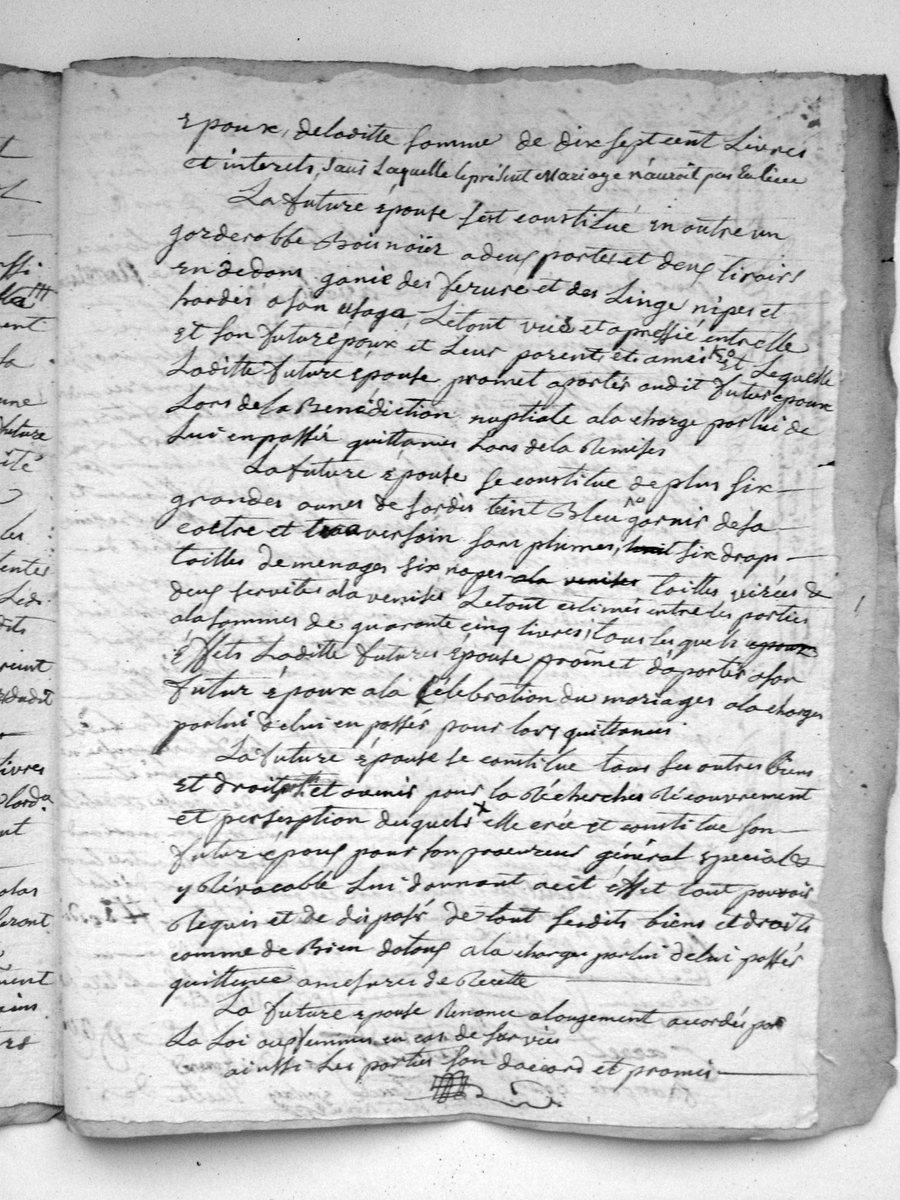 Epoux, deladitte somme de dix sept cent Livres
et interets, sans Laquelle le présent Mariage n'auroit pas Eu lieu
La future épouse s'est constitué en outre un
garderobbe bois noïer a deux portes et deux tiroirs
en dedans garnie des ferure et des Linge nipes et
hardes a son usage, Letout vüe et apressié entre elle
et son futur époux et Leur parents et amis et Lequelle
Laditte future épouse promet aporter audit futur époux
Lors de la Bénédiction nuptiale ala charge par lui de
Lui en passér quittances Lors de la Remises
La future épouse se constitue de plus six
grandes aunes de sardis teint Bleu garnir desa
coitre et traversain sans plumes, six draps
toilles de menages six napes toilles virées &
deux serviettes ala venises Letout estimés entre les parties
ala sommes de quarante cinq livres, tous les quels
Effets Laditte future épouse promet d'aporter a son
futur époux ala Célébration du mariages ala charges
par lui de lui en passér pour lors quittances
La future épouse se constitue tous ses autres biens
et droits et avenir pour la Récherches Récouvrement
et perseption desquels elle crée et constitue son
futur époux pour son procureur général spécial &
yrévocable Lui donnant a cet effet tout pouvoir
Requis et de disposér de tout sesdits biens et droits
comme de Bien dotaux ala charges par lui de lui passér
quittence amesures de Recette
La future épouse Renonce alougement accordés par
La Loi aux femmes en cas de survies
ainssi Les parties son daccord et promis